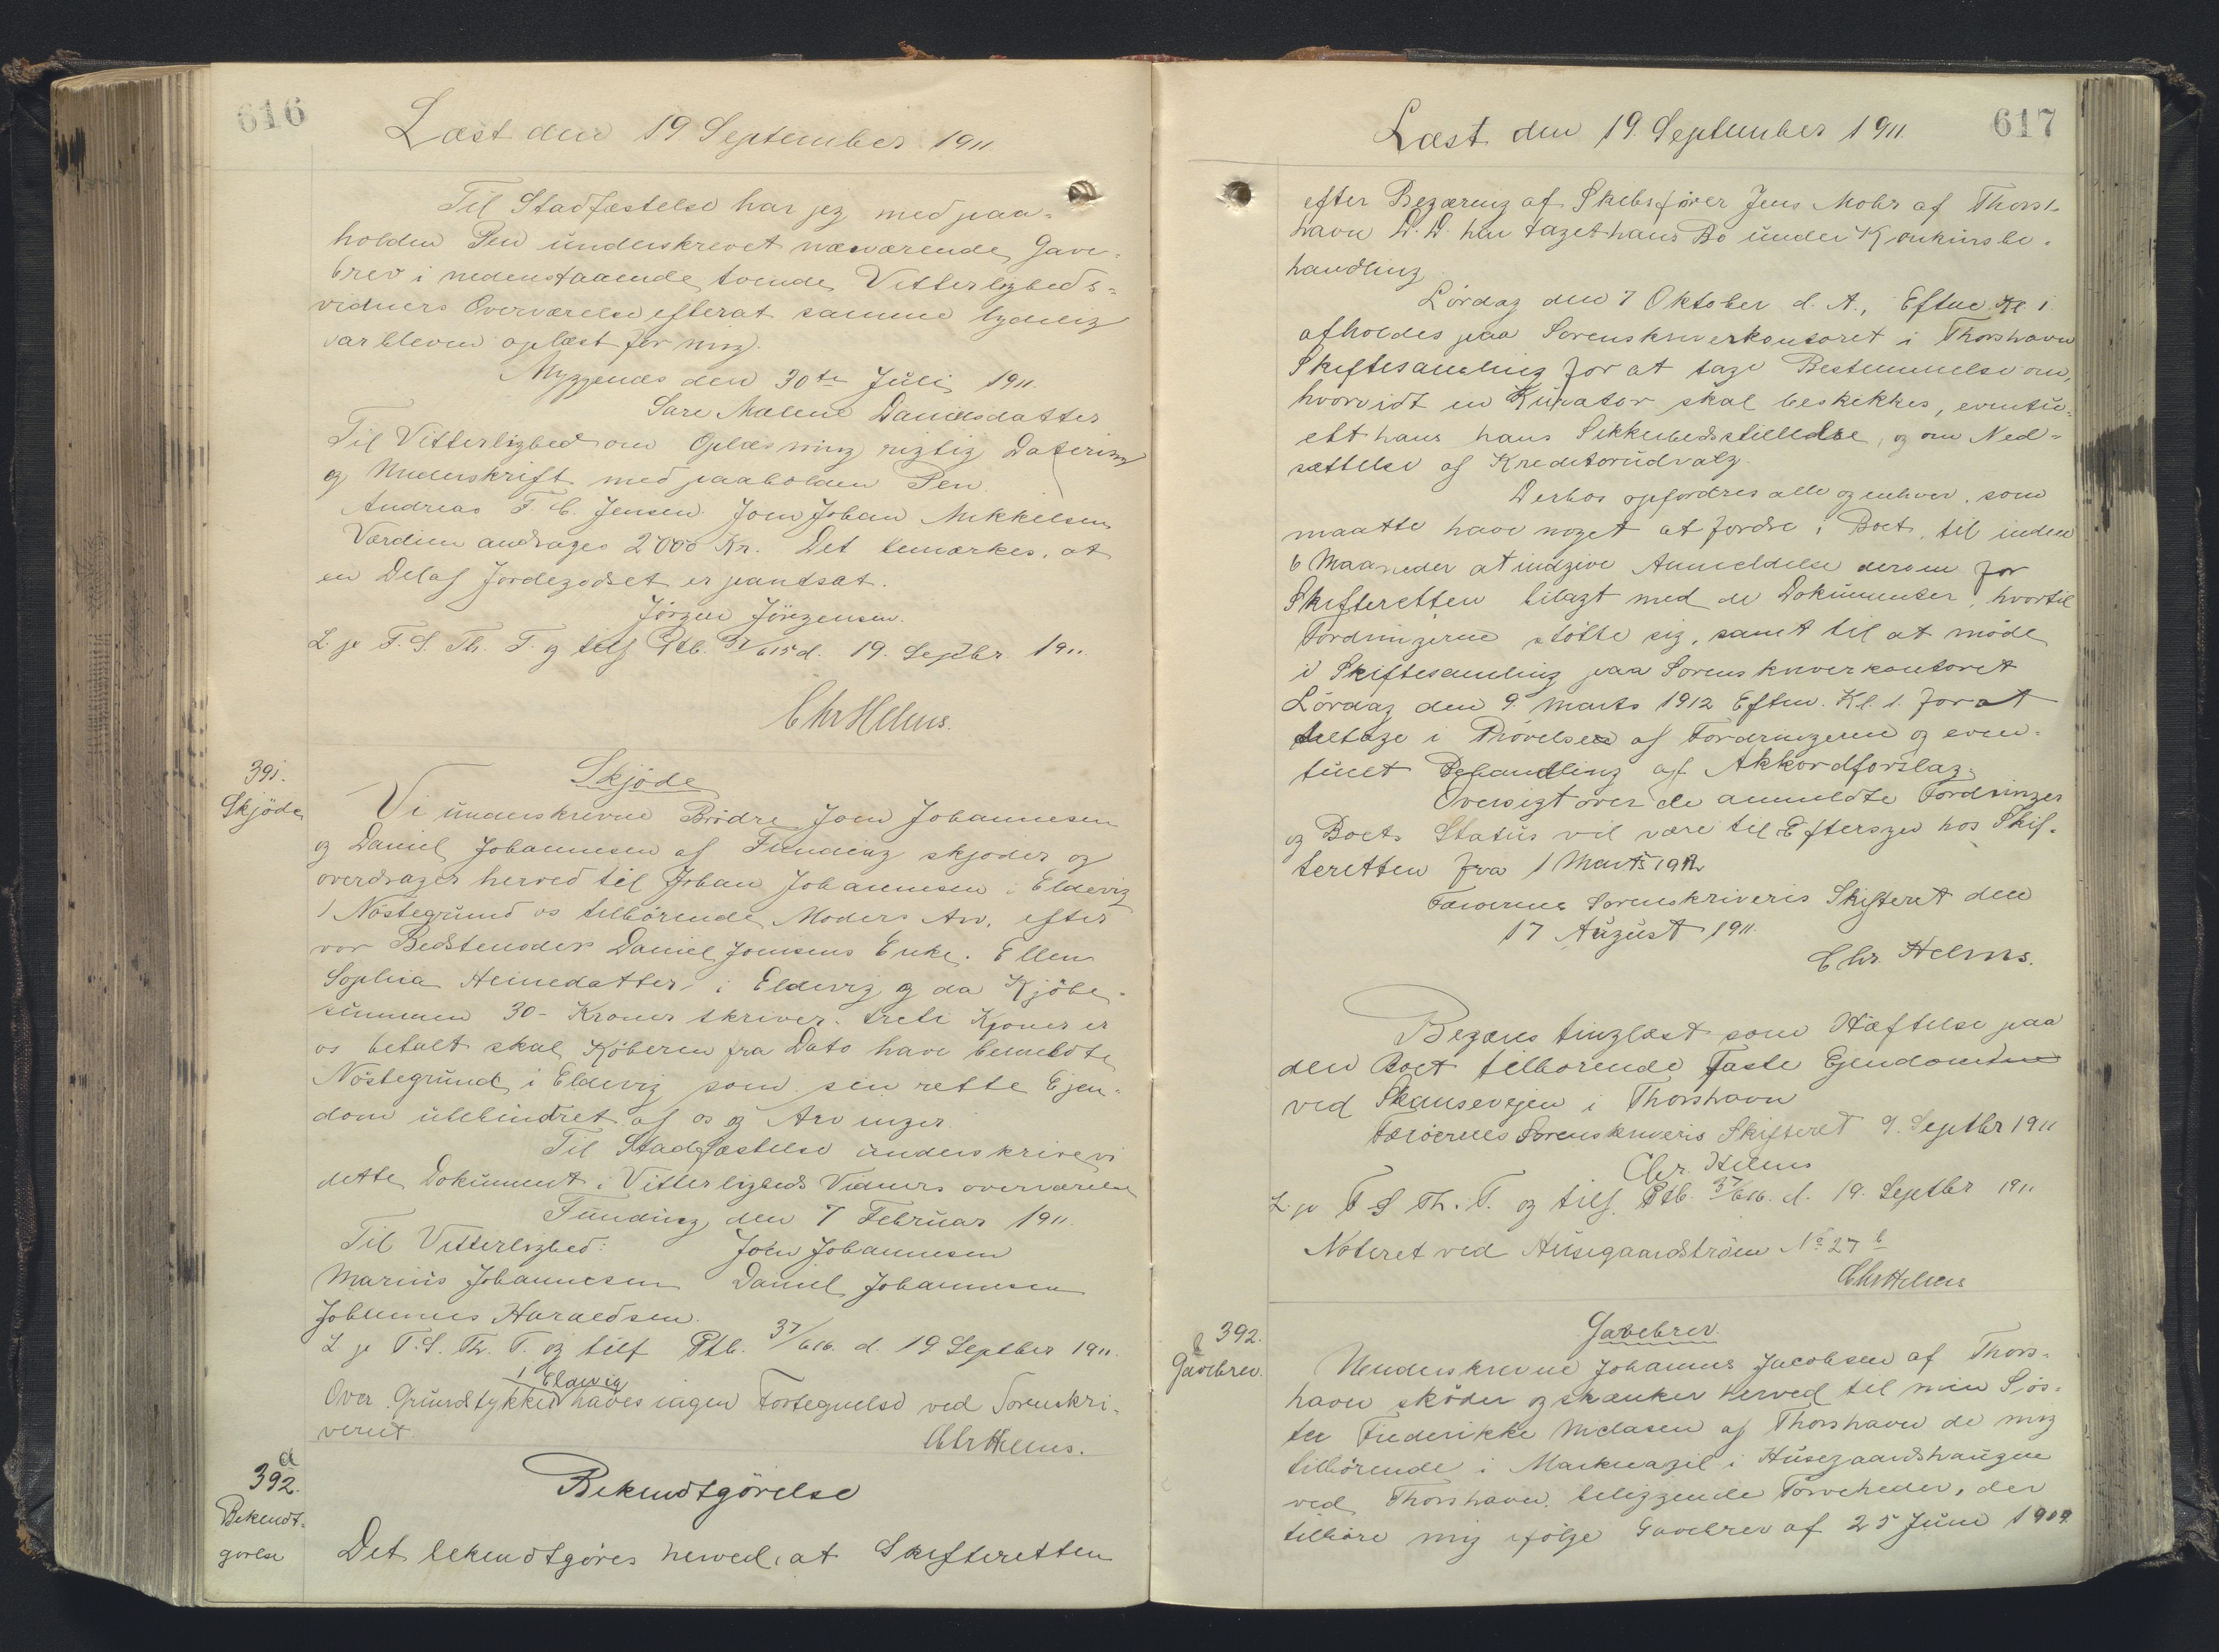 616
Læst den 19 September 1911
Til Stadfæstelse har jeg med paa-
holden Pen underskrevet nærværende Gave-
brev i nedenstaaende tvende Vitterligheds-
vidners Overværelse efterat samme tydelig
var bleven oplæst for mig.
Myggenæs den 30te Juli 1911.
Sare Malene Danielsdatter
Til Vitterlighed om Oplæsning rigtig Datering
og Underskrift med paaholden Pen
Andreas F. C. Jensen. Joen Johan Mikkelsen
Værdien andrages 2000 Kr. Det bemærkes, at
en Del af Jordegodset er pantsat.
Jörgen Jörgensen.
L. p. F. S. Th. T. og tilf Ptb. 37/615 d. 19. Septbr 1911.
Chr Helms.
391.
Skjöde
Skjöde
Vi underskrevne Brödre Joen Johannesen
og Daniel Johannesen af Funding skjöder og
overdrager herved til Johan Johannesen i Eldevig
1 Nöstegrund os tilhörende Moders Arv, efter
vor Bedstemoder Daniel Joensens Enke. Ellen
Sophia Heinedatter i Eldevig og da Kjöbe-
summen 30- Kroner skriver treti Kroner er
os betalt skal Köberen fra Dato have bemeldte
Nöstegrund i Eldevig som sin rette Ejen-
dom uhindret af os og Arvinger.
Til Stadfæstelse underskrive vi
dette Dokument i Vitterligheds Vidners overværelse
Funding den 7 Februar 1911.
Til Vitterlighed: Joen Johannesen
Marius Johannesen Daniel Johannesen
Johannes Haraldsen.
L p. F. S. Th. T. og tilf Ptb. 37/616. d. 19 Septber 1911.
i Eldevig
Over Grundstykket haves ingen Fortegnelse ved Sorenskri-
veriet
Chr Helms.
392. a
Bekendt-
görelse
Bekendtgörelse
Det bekendtgöres herved, at Skifteretten
617
Læst den 19. September 1911
efter Begæring af Skibsförer Jens Mohr af Thors-
havn D. D. har taget hans Bo under Konkursbe-
handling
Lördag den 7 Oktober d. A., Eftm. Kl. 1
afholdes paa Sorenskriverkontoret i Thorshavn
Skiftesamling for at tage Bestemmelse om,
hvorvidt en Kurator skal beskikkes, eventu-
elt hans hans Sikkerhedsstillelse, og om Ned-
sættelse af Kreditorudvalg.
Derhos opfordres alle og enhver, som
maatte have noget at fordre i Boet, til inden
6 Maaneder at indgive Anmeldelse derom for
Skifteretten bilagt med de Dokumenter, hvortil
Fordringerne stötte sig, samt til at möde
i Skiftesamling paa Sorenskriverkontoret
Lördag den 9. Marts 1912 Eftm. Kl. 1. for at
deltage i Prövelsen af Fordringerne og even-
tuelt Behandling af Akkordforslag.
Oversigt over de anmeldte Fordringer
og Boets Status vil være til Eftersyn hos Skif-
teretten fra 1 Marts 1912
Færöernes Sorenskriveris Skifteret den
17 August 1911.
Chr. Helms.
Begæres tinglæst som Hæftelse paa
den Boet tilhörende faste Ejendom
ved Skansevejen i Thorshavn
Færöernes Sorenskriveris Skifteret 9. Septbr 1911
Chr. Helms
L. p. F S Th. T. og tilf. Ptb. 37/616. d. 19. Septbr 1911
Noteret ved Husegaardströen No 27 b
Chr Helms
392. b
Gavebrev.
Gavebrev.
Underskrevne Johannes Jacobsen af Thors-
havn sköder og skænker herved til min Sös-
ter Frederikke Niclasen af Thorshavn de mig
tilhörende i Marknagil i Husegaardshaugen
ved Thorshavn beliggende Törveheder, der
tilhöre mig ifölge Gavebrev af 25 Juni 1909